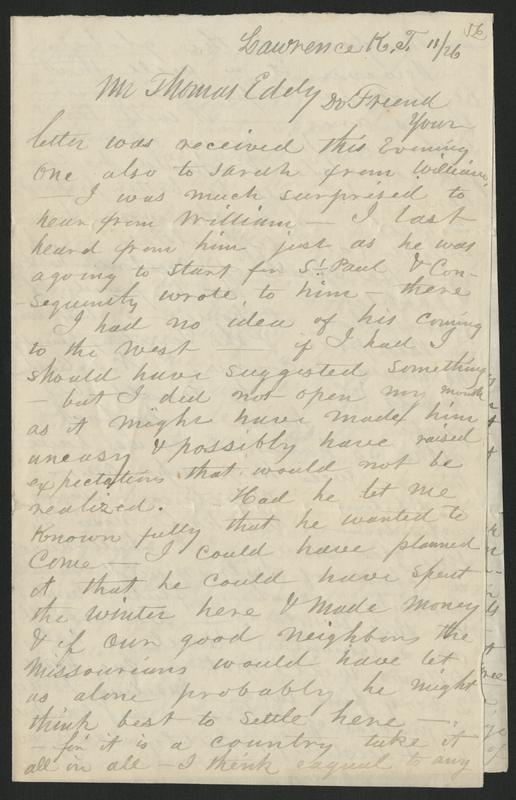 56
Lawrence K. T. 11/26
Mr Thomas Eddy Dr Friend
Your
letter was received this Evening
one also to Sarah from William,
— I was much surprised to
hear from William — I last
heard from him just as he was
agoing to start for St. Paul & Con-
sequently wrote to him — there
I had no idea of his coming
to the west — if I had I
should have suggested something
— but I did not open my mouth
as it might have made him
uneasy & possibly have raised
expectations that would not be
realized. Had he let me
known fully that he wanted to
come — I could have planned
it that he could have spent
the winter here & made money
& if our good neighbors the
Missourians would have let
us alone probably he might
think best to settle here —
— for it is a country take it
all in all — I think eaqual to any